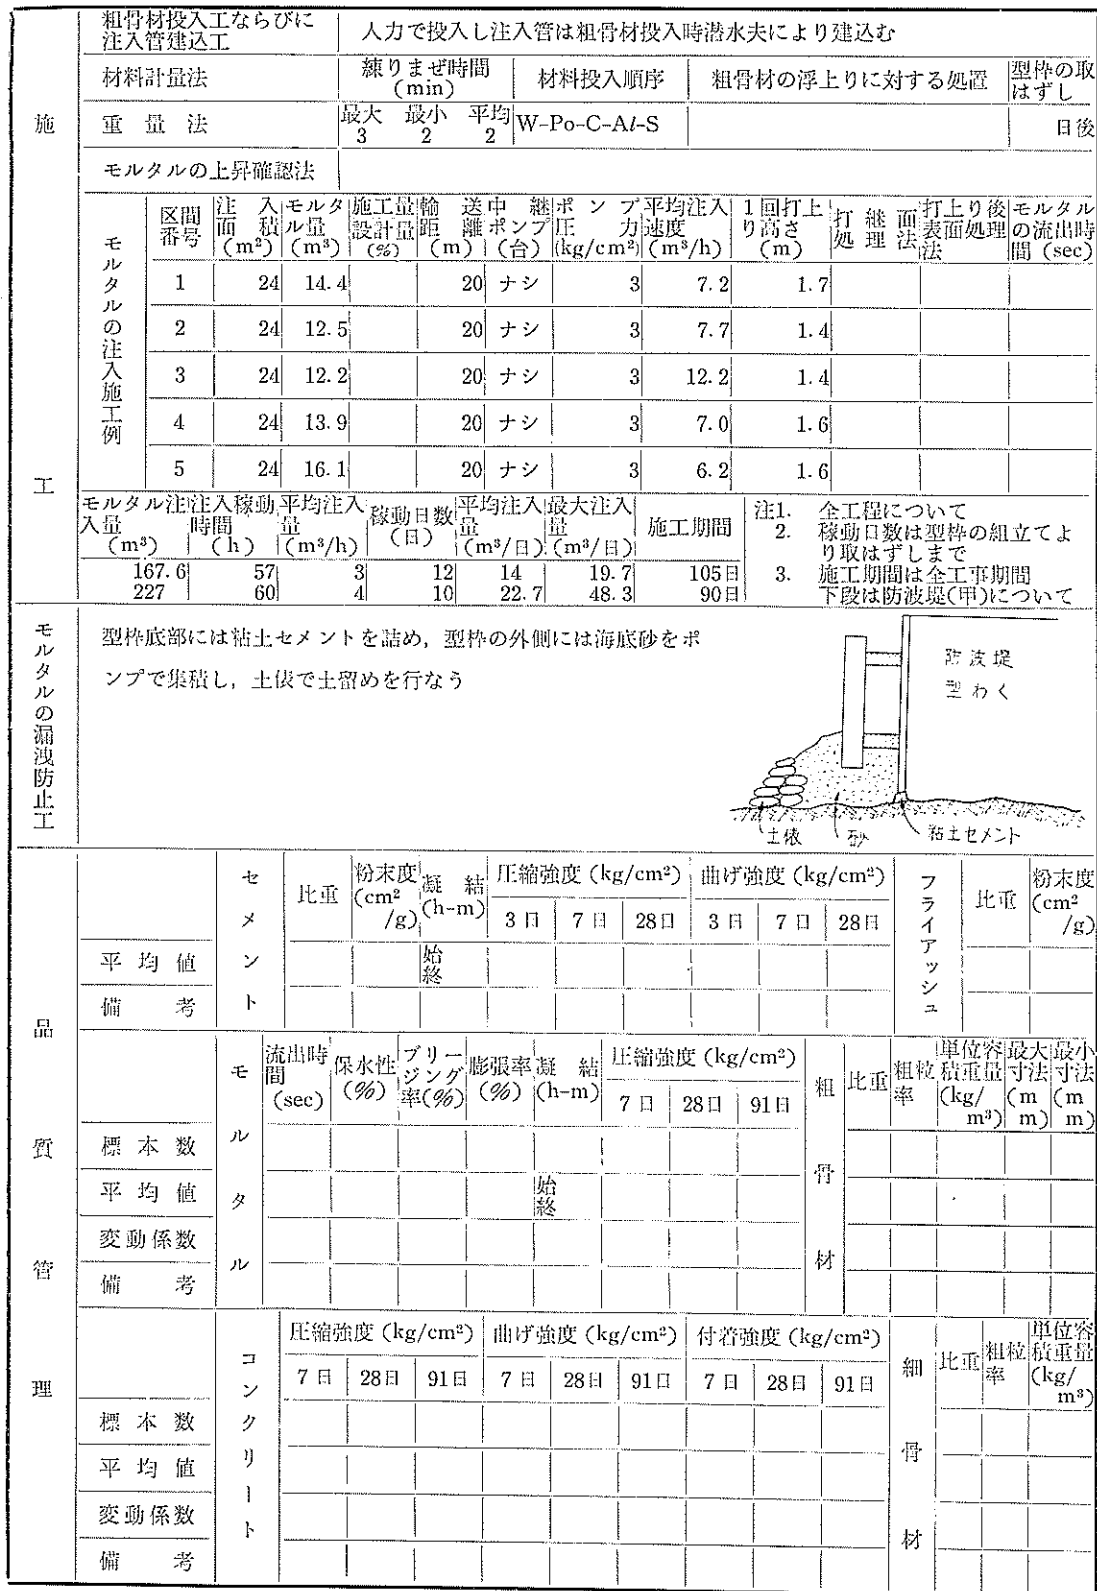 施工
粗骨材投入工ならびに
注入管建込工
人力で投入し注入管は粗骨材投入時潜水夫により建込む
材料計量法
練りまぜ時間
(min)
材料投入順序
粗骨材の浮上りに対する処置
型枠の取
はずし
重量法
最大 最小 平均
3 2 2
W-Po-C-Al-S
日後
モルタルの上昇確認法
モルタルの注入施工例
区間番号 注入面積(m²) モルタル量(m³) 施工量設計量(%) 輸送距離(m) 中継ポンプ(台) ポンプ圧力(kg/cm²) 平均注入速度(m³/h) 1回打上り高さ(m) 打継面処理法 打上り後表面処理法 モルタルの流出時間(sec)
1 24 14.4 20 ナシ 3 7.2 1.7
2 24 12.5 20 ナシ 3 7.7 1.4
3 24 12.2 20 ナシ 3 12.2 1.4
4 24 13.9 20 ナシ 3 7.0 1.6
5 24 16.1 20 ナシ 3 6.2 1.6
モルタル注入量(m³) 注入稼動時間(h) 平均注入量(m³/h) 稼動日数(日) 平均注入量(m³/日) 最大注入量(m³/日) 施工期間
167.6 57 3 12 14 19.7 105日
227 60 4 10 22.7 48.3 90日
注1. 全工程について
2. 稼動日数は型枠の組立てよ
り取はずしまで
3. 施工期間は全工事期間
下段は防波堤(甲)について
モルタルの漏洩防止工
型枠底部には粘土セメントを詰め，型枠の外側には海底砂をポ
ンプで集積し，土俵で土留めを行なう
防波堤
型わく
土俵 砂 粘土セメント
品質管理
セメント
比重 粉末度(cm²/g) 凝結(h-m) 圧縮強度 (kg/cm²) 曲げ強度 (kg/cm²)
3日 7日 28日 3日 7日 28日
フライアッシュ
比重 粉末度(cm²/g)
平均値 始終
備考
モルタル
流出時間(sec) 保水性(%) ブリージング率(%) 膨張率(%) 凝結(h-m) 圧縮強度 (kg/cm²)
7日 28日 91日
粗骨材
比重 粗粒率 単位容積重量(kg/m³) 最大寸法(mm) 最小寸法(mm)
標本数
平均値 始終
変動係数
備考
コンクリート
圧縮強度 (kg/cm²) 曲げ強度 (kg/cm²) 付着強度 (kg/cm²)
7日 28日 91日 7日 28日 91日 7日 28日 91日
細骨材
比重 粗粒率 単位容積重量(kg/m³)
標本数
平均値
変動係数
備考